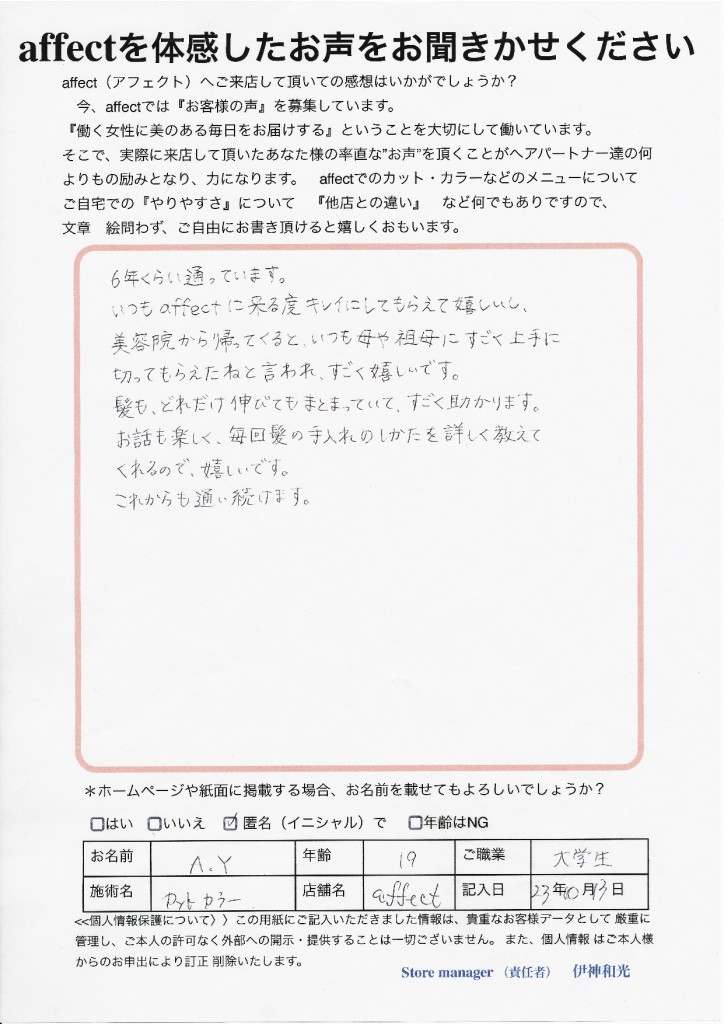 affectを体感したお声をお聞きかせください
affect（アフェクト）へご来店して頂いての感想はいかがでしょうか？
今、affectでは『お客様の声』を募集しています。
『働く女性に美のある毎日をお届けする』ということを大切にして働いています。
そこで、実際に来店して頂いたあなた様の率直な”お声”を頂くことがヘアパートナー達の何
よりもの励みとなり、力になります。　affectでのカット・カラーなどのメニューについて
ご自宅での『やりやすさ』について　『他店との違い』　など何でもありですので、
文章　絵問わず、ご自由にお書き頂けると嬉しくおもいます。
6年くらい通っています。
いつもaffectに来る度キレイにしてもらえて嬉しいし、
美容院から帰ってくると、いつも母や祖母にすごく上手に
切ってもらえたねと言われ、すごく嬉しいです。
髪も、どれだけ伸びてもまとまっていて、すごく助かります。
お話も楽しく、毎回髪の手入れのしかたを詳しく教えて
くれるので、嬉しいです。
これからも通い続けます。
＊ホームページや紙面に掲載する場合、お名前を載せてもよろしいでしょうか？
はい　いいえ　匿名（イニシャル）で　年齢はNG
お名前　A.Y　年齢　19　ご職業　大学生
施術名　カット カラー　店舗名　affect　記入日　23年10月13日
<<個人情報保護について〉〉この用紙にご記入いただきました情報は、貴重なお客様データとして 厳重に
管理し、ご本人の許可なく外部への開示・提供することは一切ございません。また、個人情報 はご本人様
からのお申出により訂正 削除いたします。
Store manager （責任者）　伊神和光